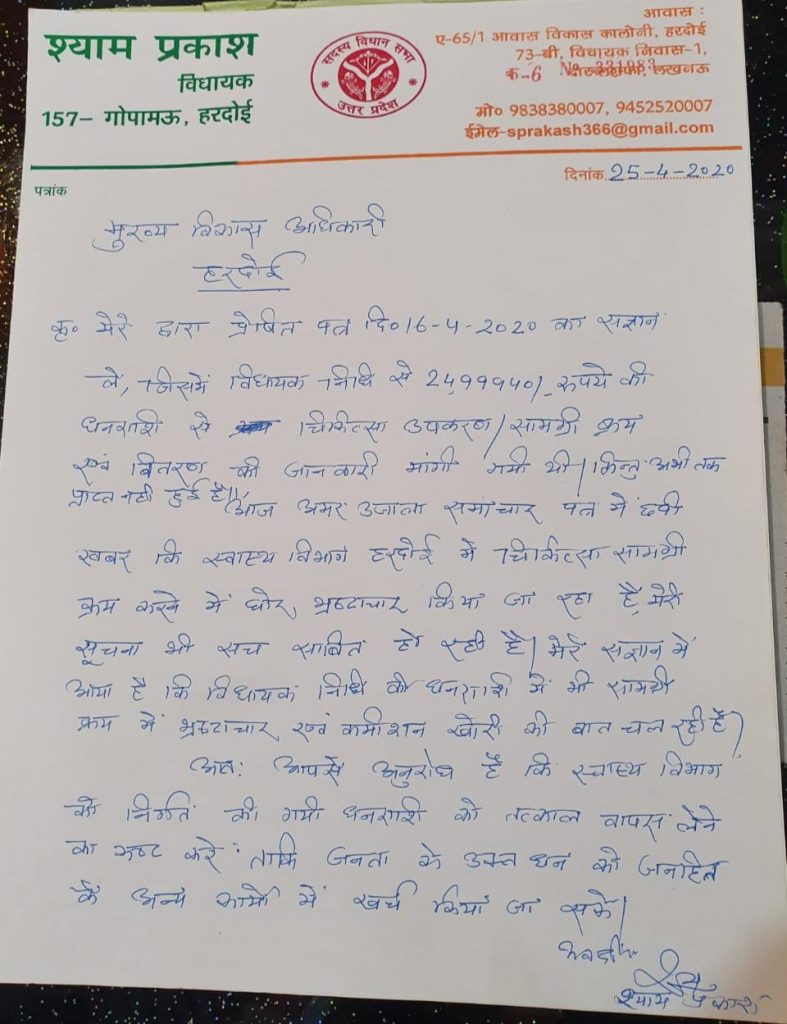 श्याम प्रकाश
विधायक
157– गोपामऊ, हरदोई
सदस्य विधान सभा
उत्तर प्रदेश
आवास :
ए-65/1 आवास विकास कालोनी, हरदोई
73-बी, विधायक निवास-1,
क-6 No 331083 लखनऊ
मो० 9838380007, 9452520007
ईमेल-sprakash366@gmail.com
पत्रांक
दिनांक 25-4-2020
मुख्य विकास अधिकारी
हरदोई
कृ० मेरे द्वारा प्रेषित पत्र दि० 16-4-2020 का संज्ञान
ले, जिसमें विधायक निधि से 2499940/- रुपये की
धनराशि से चिकित्सा उपकरण/सामग्री क्रय
एवं वितरण की जानकारी मांगी गयी थी। किन्तु अभी तक
प्राप्त नहीं हुई है।
आज अमर उजाला समाचार पत्र में छपी
खबर कि स्वास्थ्य विभाग हरदोई में चिकित्सा सामग्री
क्रय करने में घोर भ्रष्टाचार किया जा रहा है, मेरी
सूचना भी सच साबित हो रही है। मेरे संज्ञान में
आया है कि विधायक निधि की धनराशि में भी सामग्री
क्रय में भ्रष्टाचार एवं कमीशन खोरी की बात चल रही है।
अतः आपसे अनुरोध है कि स्वास्थ्य विभाग
को निर्गत की गयी धनराशि को तत्काल वापस लेने
का कष्ट करें ताकि जनता के उक्त धन को जनहित
के अन्य कार्यो में खर्च किया जा सके।
भवदीय
श्याम प्रकाश